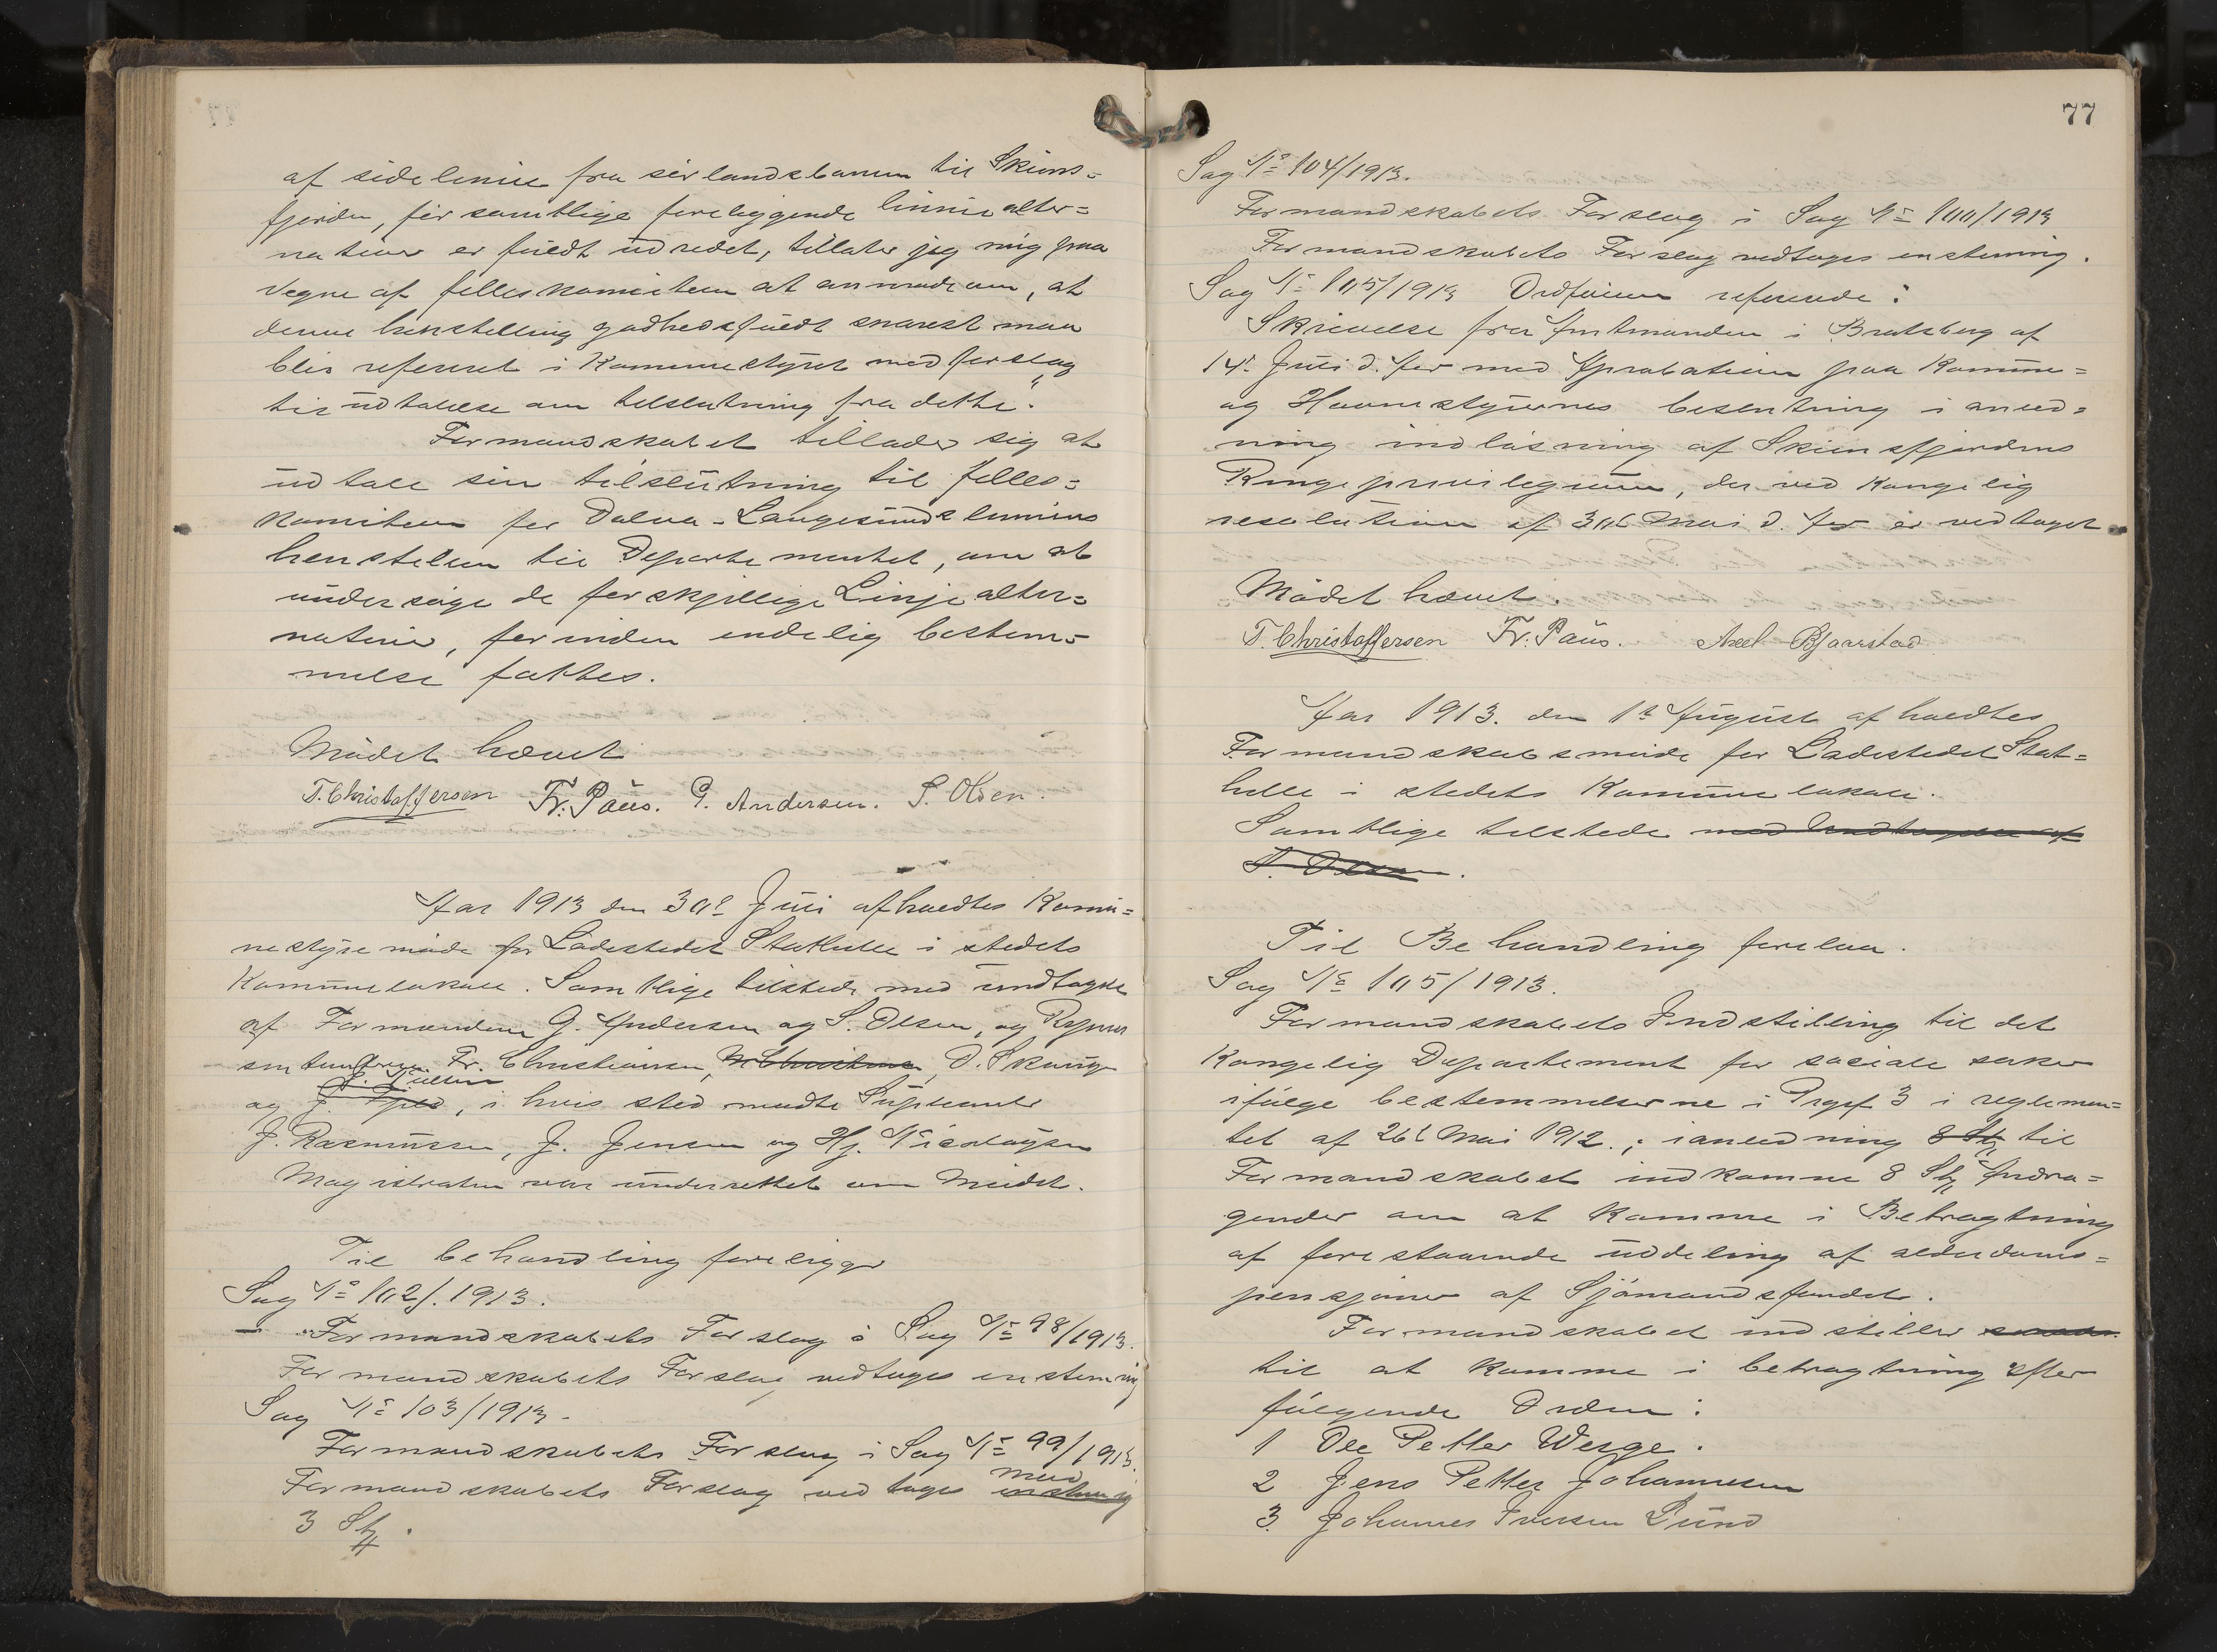 af sidelinie fra sörlandsbanen til Skiens-
fjorden, før samtlige foreliggende linniealter=
nativer er fuldt udredet, tillater jeg mig paa
vegne af felleskomiteen at anmode om, at
denne henstelling godhedsfuldt snarest maa
blir refereret i Kommunestyret med forslag
til udtalelse om tilslutning fra dette."
Formandskabet tillader sig at
udtale sin tilslutning til felles=
komiteen for Dalva-Langesundslinniens
henstelen til Departementet, om at
undersøge de forskjellige Linjealter=
nativer, forinden endelig bestem-
melse fattes.
Mödet hævet
T. Christoffersen Fr. Paus. G. Andersen. S. Olsen.
Aar 1913 den 30te Juli afholdtes Kommu=
nestyremöde for Ladestedet Stathelle i stedets
Kommunelokale. Samtlige tilstede med undtagelse
af Formændene G. Andersen og S. Olsen, og Repræ
sentanterne Fr. Christiansen, O. Skaug
og J., i hvis sted mødte Suppleanter
J. Rasmussen, J. Jensen og Hj. Nicolaysen
Magistraten var underrettet om Mødet.
Til behandling foreligger
Sag No 102/1913.
- Formandskabets Forslag i Sag No 98/1913.
Formandskabets Forslag vedtages enstemmig
Sag No 103/1913.
Formandskabets Forslag i Sag No 99/1913.
Formandskabets Forslag vedtages med enstemmig
3 St.
77
Sag No 104/1913.
Formandskabets Forslag i Sag No 100/1913
Formandskabets Forslag vedtages enstemmig.
Sag No 105/1913 Ordføreren refererede:
Skrivelse fra Amtmanden i Bratsberg af
14de Juli d. Aar med Aprobation paa Kommune=
og Havnestyrernes beslutning i anled=
ning indløsning af Skiensfjordens
Ringeprivilegium, der ved Kongelig
resolution af 30te Mai d. Aar er vedtaget
Mödet hævet.
T. Christoffersen Fr. Paus. Axel Bjaarstad
Aar 1913. den 1ste August afholdtes
Formandskabsmöde for Ladestedet Stat=
helle i stedets Kommunelokale.
Samtlige tilstede med Undtagelse af
S. Olsen.
Til Behandling forelaa.
Sag No 105/1913.
Formandskabets Indstilling til det
Kongelig Departement for sociale saker
ifølge bestemmelserne i Prgf 3 i reglemen=
tet af 26de Mai 1912.; ianledning 8 Stk til
Formandskabet indkomne 8 Stk Andra=
gender om at komme i Betragtning
af forestaaende uddeling af alderdoms=
pensjoner af Sjömandsfondet.
Formandskabet indstiller
til at komme i betragtning efter
følgende Orden:
1 Ole Petter Werge.
2 Jens Petter Johannesen
3. Johannes Iversen Lund